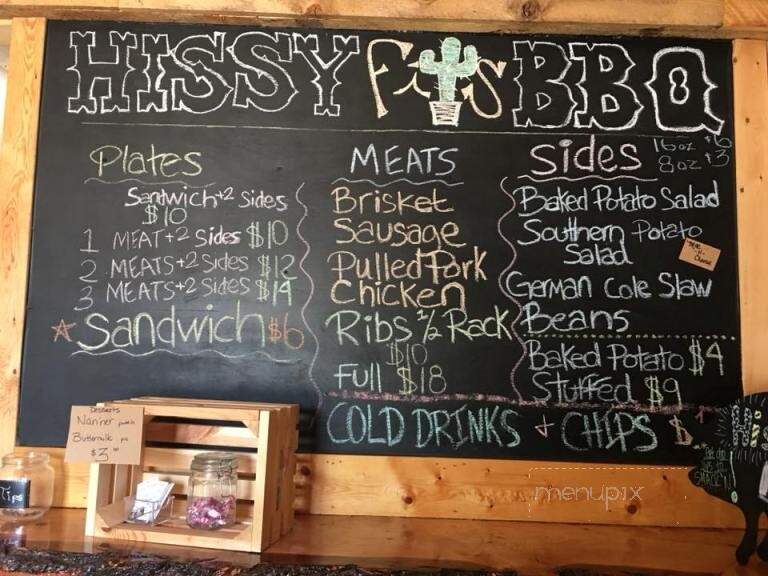 HISSY Fits BBQ
Plates
Sandwich + 2 Sides
$10
1 MEAT + 2 Sides $10
2 MEATS + 2 Sides $12
3 MEATS + 2 Sides $14
Sandwich $6
MEATS
Brisket
Sausage
Pulled Pork
Chicken
Ribs 1/2 Rack
$10
Full $18
Sides
16oz $6
8oz $3
Baked Potato Salad
Southern Potato
Salad
Mac
-n-
Cheese
German Cole Slaw
Beans
Baked Potato $4
Stuffed $9
COLD DRINKS + CHIPS $
Desserts
Nan'ner
Buttermilk pie
$3
Tips
menupix